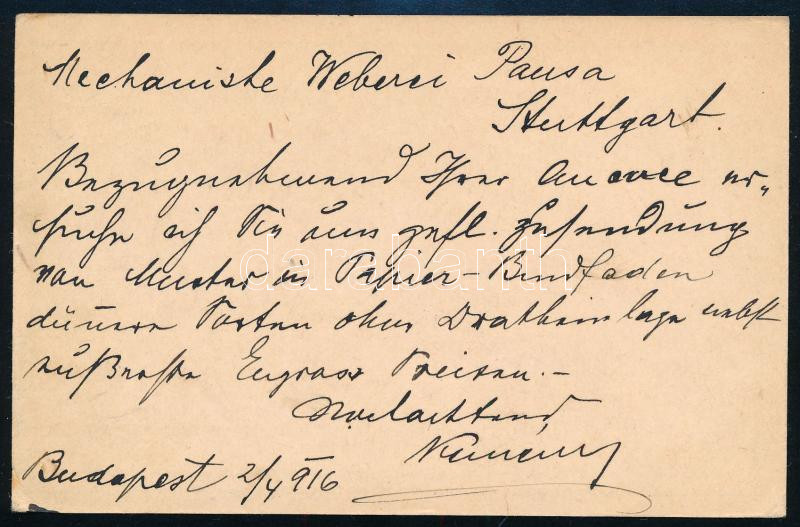 Mechanische Weberei Pausa
Stuttgart.
Bezugnehmend Ihrer Annonce er-
suche ich Sie um gefl. Zusendung
von Muster in Papier-Bindfaden
dünnere Sorten ohne Dratheinlage nebst
äußersten Engros Preisen.-
Hochachtend
Budapest 2/4 916
darabanth